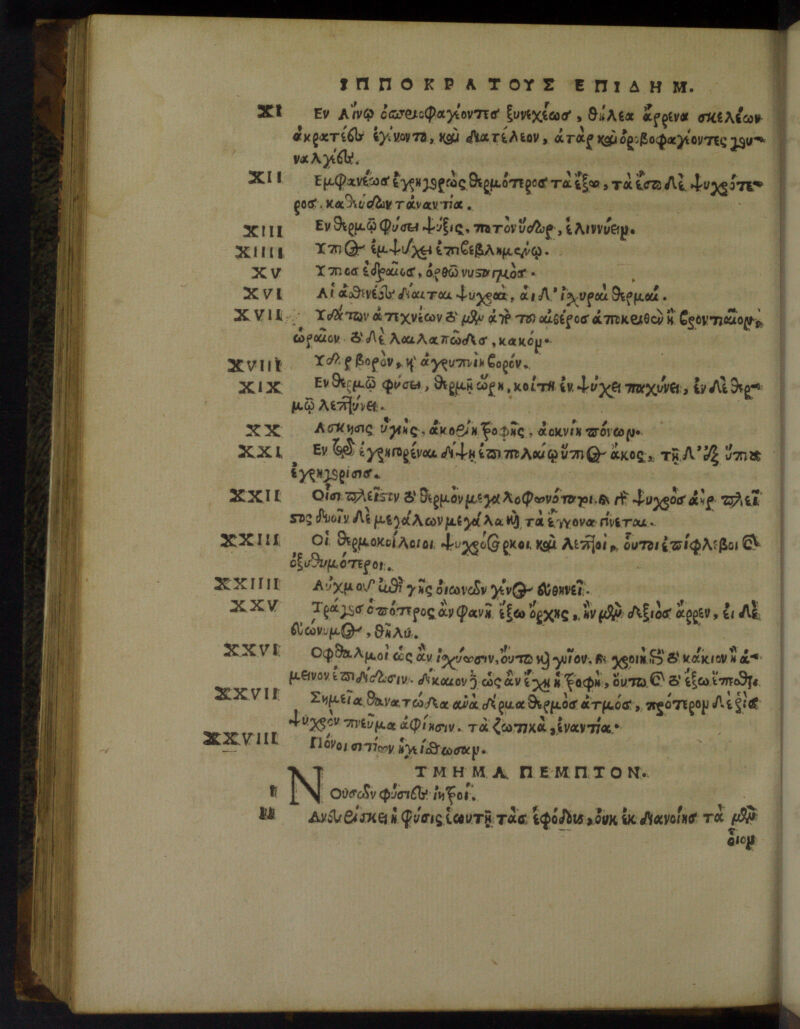 ΙΠΠΟΚΡΑΤΟΥΣ ΕΠΙΔΗΜ.
XI Εν Αἴνῳ ὀσπριοφαγέοντες ξυνεχέως, θήλεα ἄρρενα σκελέων
ἀκρατέες ἐγένοντο, καὶ διατέλεον, ἀτὰρ καὶ ὀροβοφαγέοντες γου-
ναλγέες.
XII Εμφανέως ἐγρήγορεὼς θερμότερος τὰ ἔξω, τὰ ἔσω δὲ ψυχρότε-
ρος, καθεύδων τἀναντία.
XIII Εν θερμῷ φύσει ψύξις, ποτὸν ὕδωρ, ἐλιννύειν.
XIIII Ὕπνος ἐμψύχει ἐπιβεβλημένῳ.
XV Ὕπνος ἑδραῖος, ὀρθῷ νυσταγμός.
XVI Αἱ ἀσθενέες δίαιται ψυχραὶ, αἱ δ' ἰσχυραὶ θερμαί.
XVII Ὑδάτων ἀτεχνέων ὃ μὲν ἀπὸ τοῦ αἰθέρος ἀποκριθὲν ἢ βρονταῖον,
ὡραῖον ὃ δὲ λαιλαπῶδες, κακόν.
XVIII Ὑδρηβορὸν, ἡ ἀγρυπνίη βορόν.
XIX Εν θερμῷ φύσει, θερμῇ ὥρῃ, κοίτη ἐν ψύχει παχύνει, ἐν δὲ θερ-
μῷ λεπτύνει.
XX Ασκησις ὑγιής, ἀκορίη τροφῆς, ἀοκνίη πόνων.
XXI Εν τῷ ἐγρηγορέναι δίψῃ ἐπιπολαίῳ ὕπνος ἄκος, τῇ δ' ἐξ ὕπνου
ἐγρήγορσις.
XXII Οἷσι πλεῖστον τὸ θερμὸν μεγαλοφωνότατοι, καὶ γὰρ ψυχρὸς ἀὴρ πλεῖ-
στος δυοῖν δὲ μεγάλων μεγάλα καὶ τὰ ἔγγονα γίνεται.
XXIII Οἱ θερμοκοίλιοι ψυχρόσαρκοι καὶ λεπτοὶ, οὗτοι ἐπίφλεβοι καὶ
ὀξυθυμότεροι.
XXIIII Αὐχμοῦ αὖθι γῆς οἰωνῶν γένος εὐθηνεῖ.
XXV Τράγος ὁπότερος ἂν φανῇ ἔξω ὄρχις, ἢν μὲν δεξιὸς ἄρρεν, εἰ δὲ
εὐώνυμος, θῆλυ.
XXVI Οφθαλμοὶ ὡς ἂν ἰσχύωσιν, οὕτω καὶ γυῖον, καὶ χροιὴ ἐπὶ τὸ κάκιον ἢ ἄ-
μεινον ἐπιδίδωσιν. δίκαιον δὲ ὡς ἂν ἔχῃ ἡ τροφὴ, οὕτω καὶ τὸ ἔξω ἕπεσθαι.
XXVII Σημεῖα θανατώδεα ἀνὰ δέρμα θερμὸς ἀτμός, πρότερον δὲ ῥὶς
ψυχρὸν πνεῦμα ἀφίησιν. τὰ ζωτικὰ, ἐναντία.
XXVIII Πόνοι σιτίων ἡγείσθωσαν.
ΤΜΗΜΑ ΠΕΜΠΤΟΝ.
I Νούσων φύσιες ἰητροί.
II Ανευρίσκει ἡ φύσις ἑωυτῇ τὰς ἐφόδους, οὐκ ἐκ διανοίης τὰ μὲν
οἷον